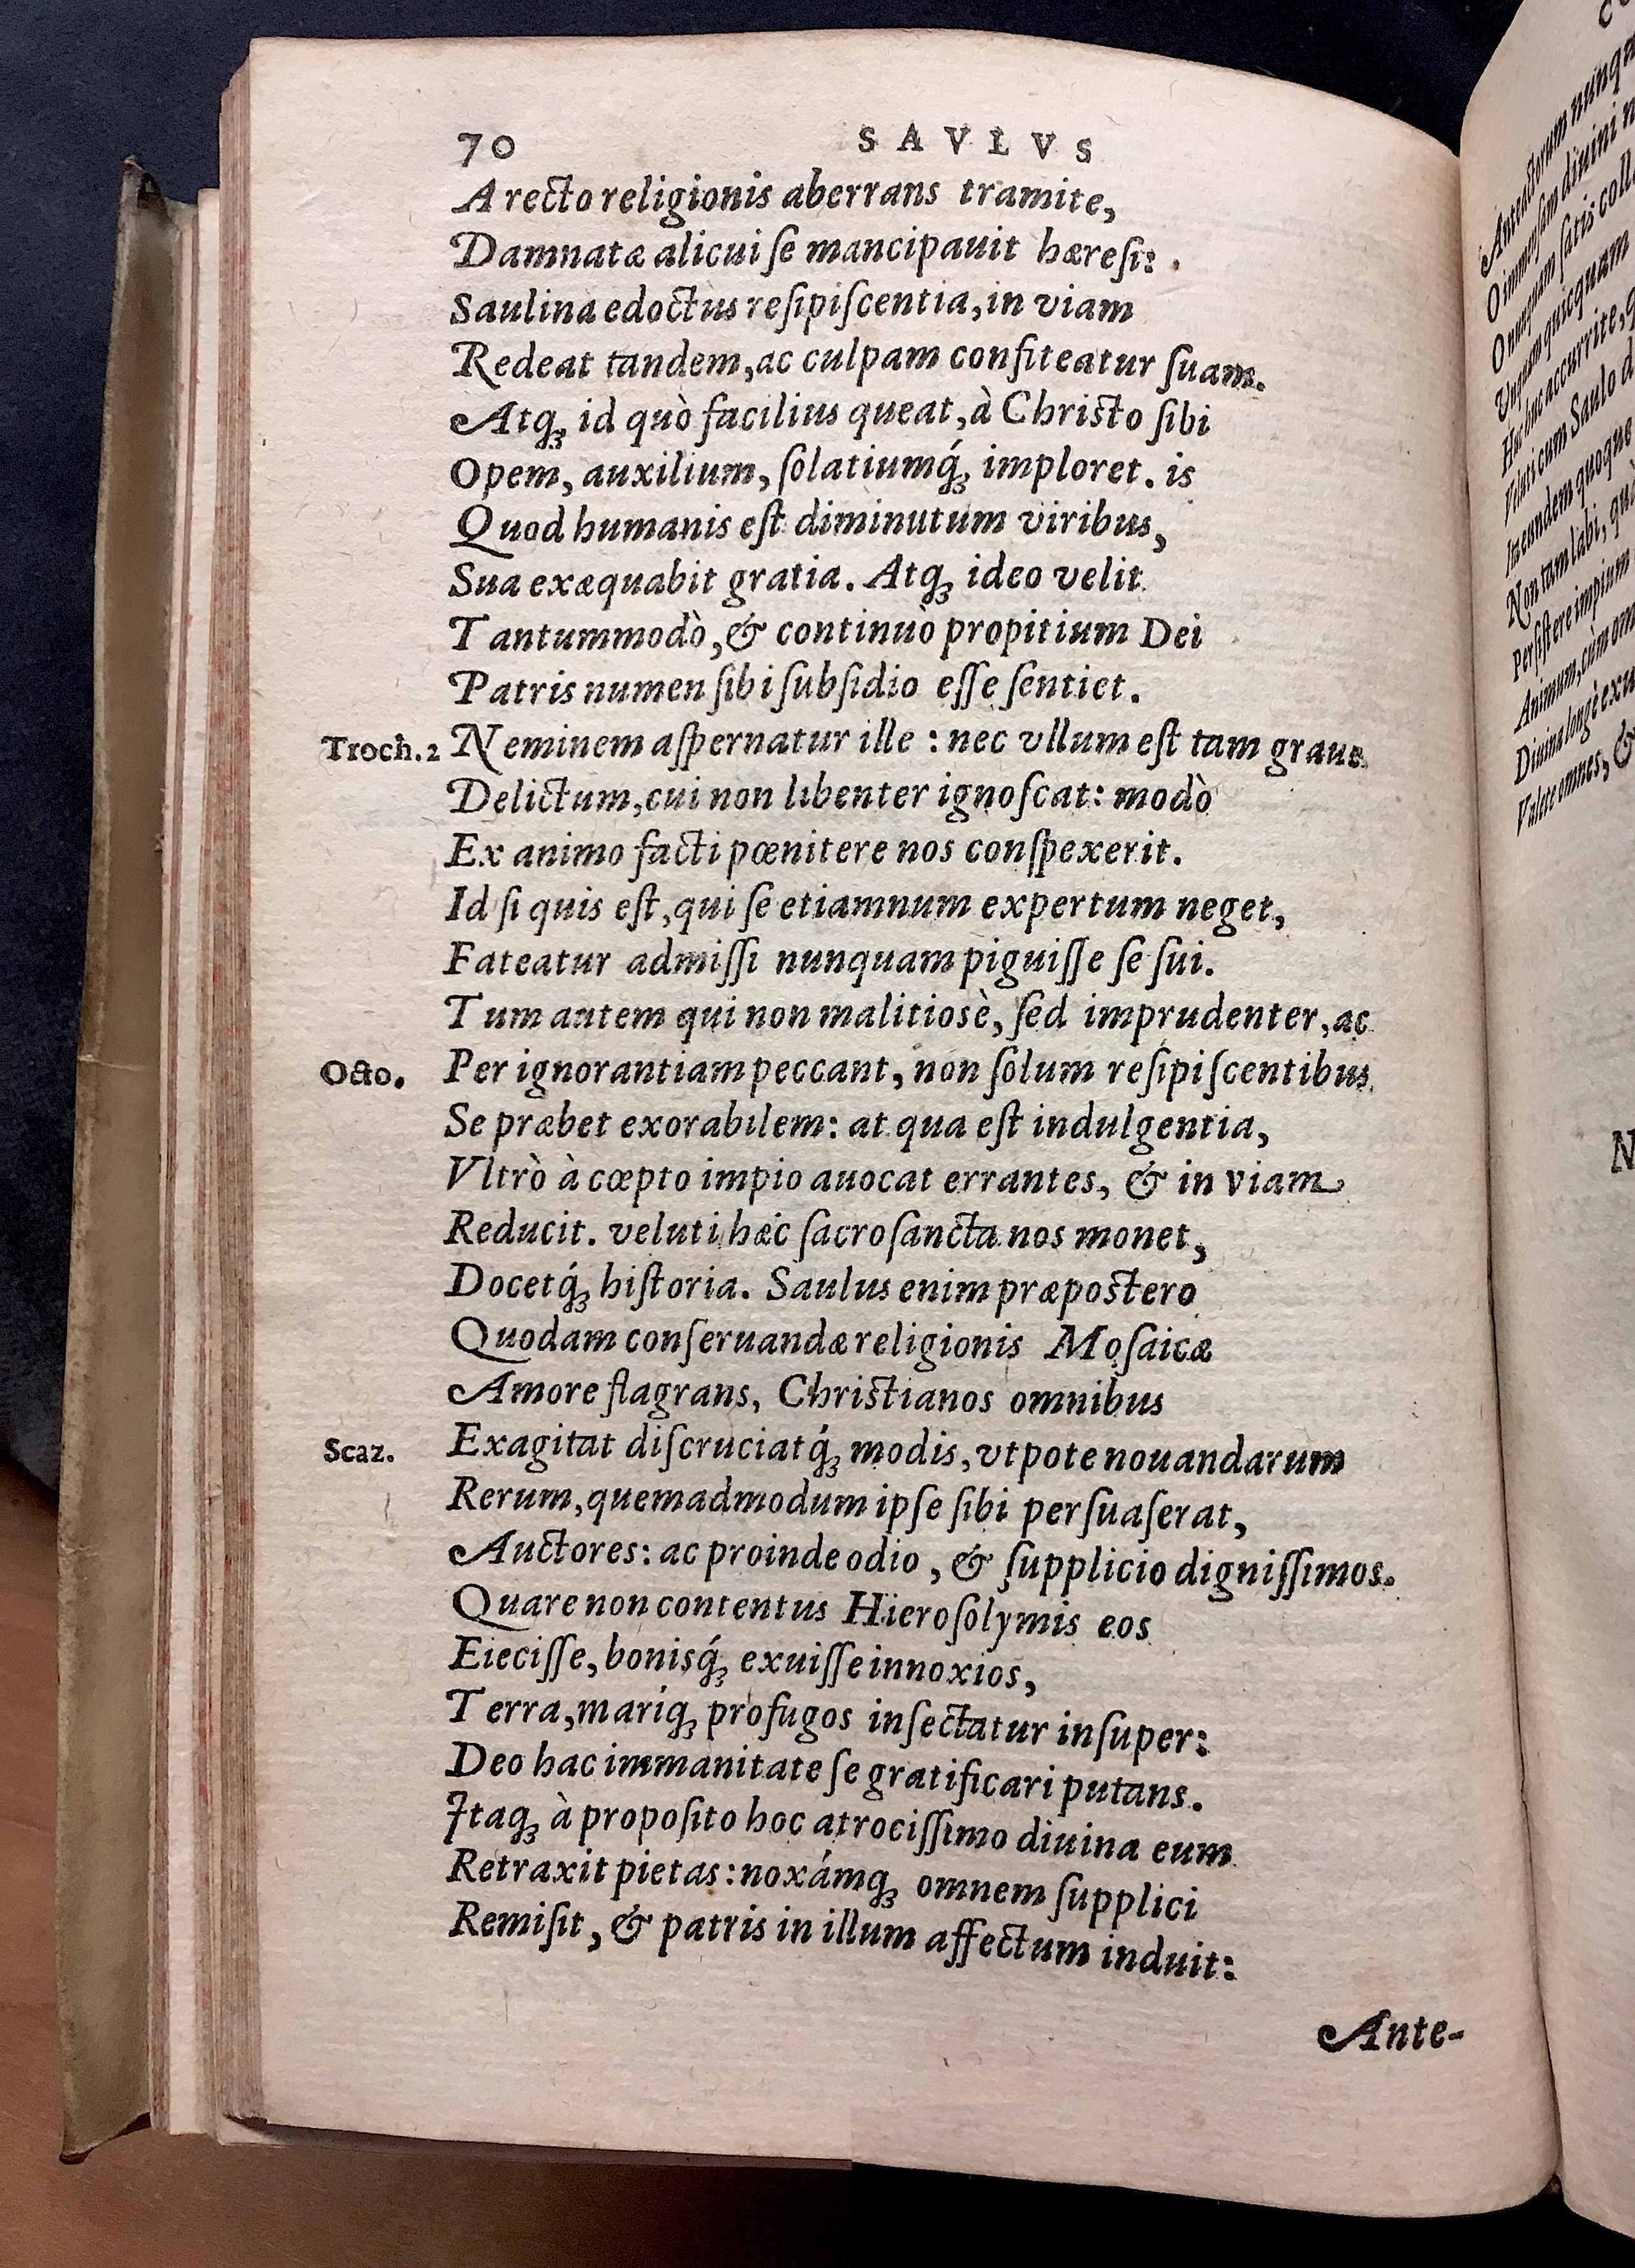 70 SAVLVS
A recto religionis aberrans tramite,
Damnatæ alicui ſe mancipauit hæreſi:
Saulina edoctus reſipiſcentia, in viam
Redeat tandem, ac culpam confiteatur ſuam.
Atq; id quò facilius queat, à Chriſto ſibi
Opem, auxilium, ſolatiumq́; imploret. is
Quod humanis eſt diminutum viribus,
Sua exæquabit gratia. Atq; ideo velit
Tantummodò, & continuò propitium Dei
Patris numen ſibi ſubſidio eſſe ſentiet.
Troch.2 Neminem aſpernatur ille : nec vllum eſt tam graue
Delictum, cui non libenter ignoſcat: modò
Ex animo facti pœnitere nos conſpexerit.
Id ſi quis eſt, qui ſe etiamnum expertum neget,
Fateatur admiſſi nunquam piguiſſe ſe ſui.
Tum autem qui non malitiosè, ſed imprudenter, ac
Octo. Per ignorantiam peccant, non ſolum reſipiſcentibus
Se præbet exorabilem: at qua eſt indulgentia,
Vltrò à cœpto impio auocat errantes, & in viam
Reducit. veluti hæc ſacroſancta nos monet,
Docetq́; hiſtoria. Saulus enim præpoſtero
Quodam conſeruandæ religionis Moſaicæ
Amore flagrans, Chriſtianos omnibus
Scaz. Exagitat diſcruciatq́; modis, vtpote nouandarum
Rerum, quemadmodum ipſe ſibi perſuaſerat,
Auctores: ac proinde odio, & ſupplicio digniſſimos.
Quare non contentus Hieroſolymis eos
Eieciſſe, bonisq́; exuiſſe innoxios,
Terra, mariq; profugos inſectatur inſuper:
Deo hac immanitate ſe gratificari putans.
Itaq; à propoſito hoc atrociſſimo diuina eum
Retraxit pietas: noxámq; omnem ſupplici
Remiſit, & patris in illum affectum induit:
Ante-
Anteactorum nunqu
O immenſam diuini n
O nunquam ſatis coll
Vnquam quicquam
Huc huc accurrite, q
Veluti cum Saulo d
In eundem quoque
Non tam labi, quà
Perſiſtere impium
Animum, cùm om
Diuina longè exu
Valete omnes, &
N